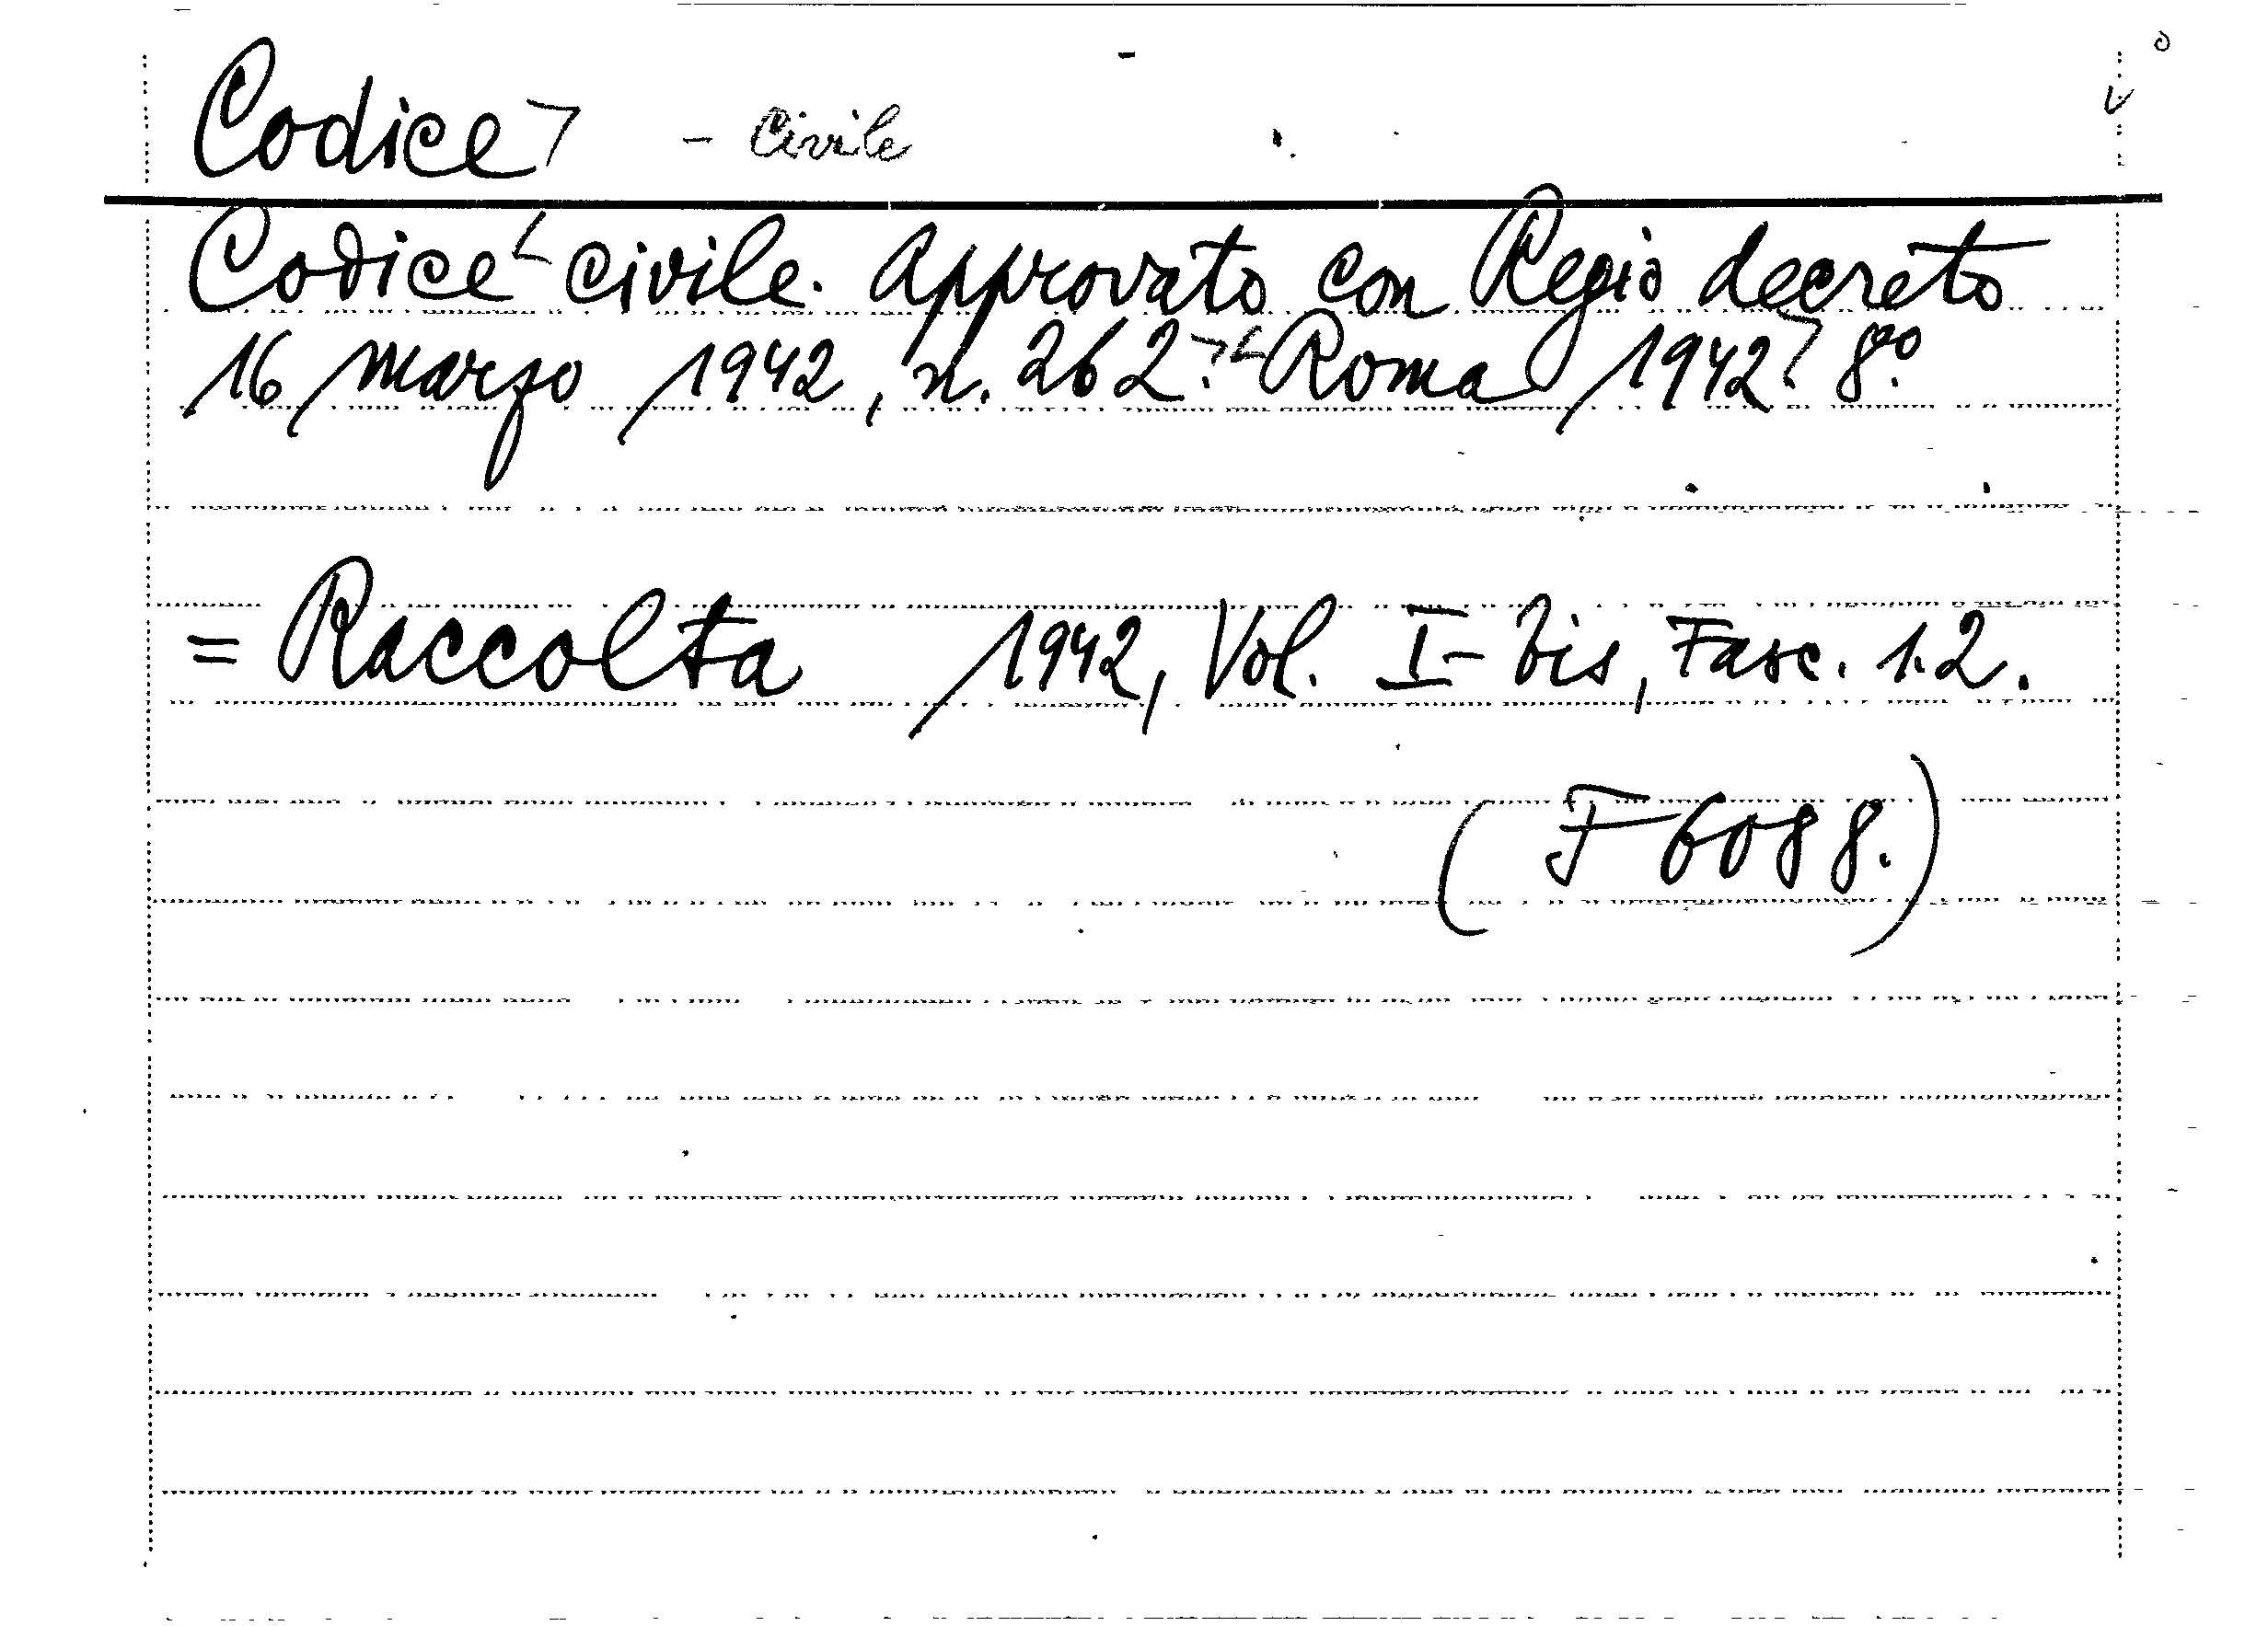 Codice - Civile
Codice civile. Approvato con Regio decreto
16 marzo 1942, n. 262. Roma 1942. 8o.
= Raccolta 1942, Vol. I-bis, Fasc. 1.2.
(F 6088.)